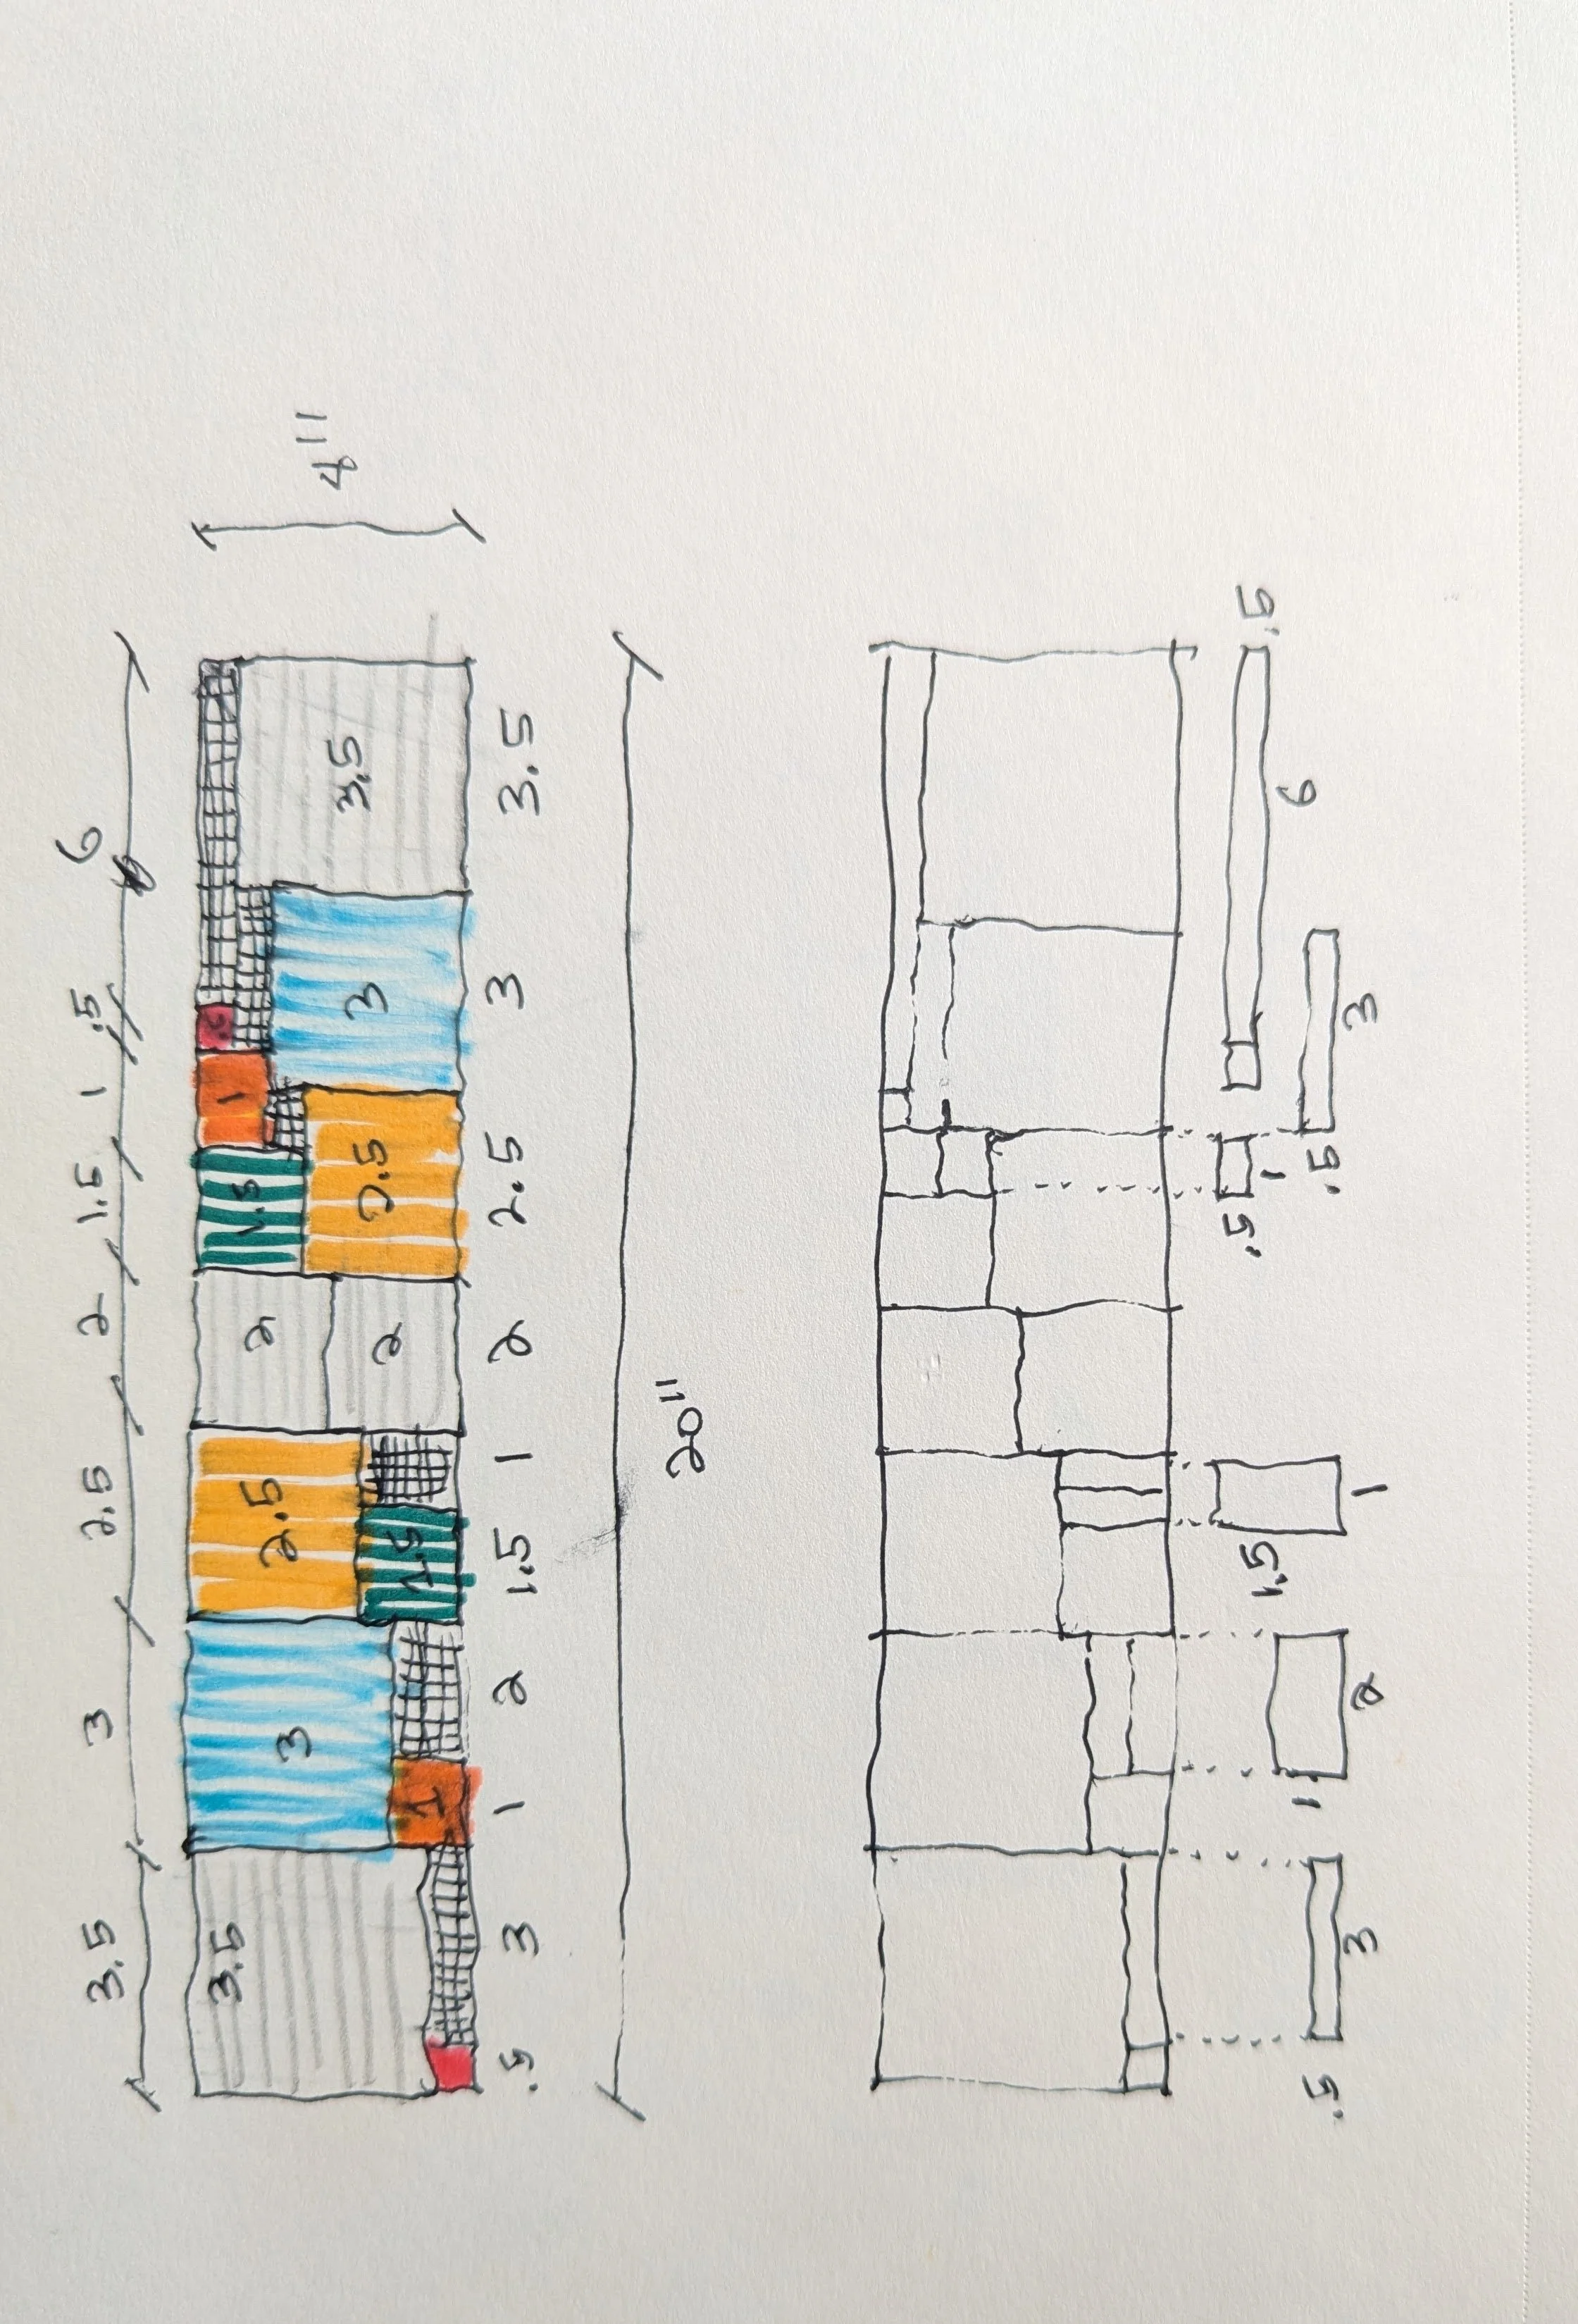 3.5 3 2.5 2 1.5 1 .5 6
3.5 3 2.5 2 1.5 1 .5
1 1.5 2 2.5 3 3.5 4"
.5 3 1 2 1.5 1 2 2.5 3 3.5
20"
1.5 .5 .5
1 1 6
.5 .5
3 2 1 3